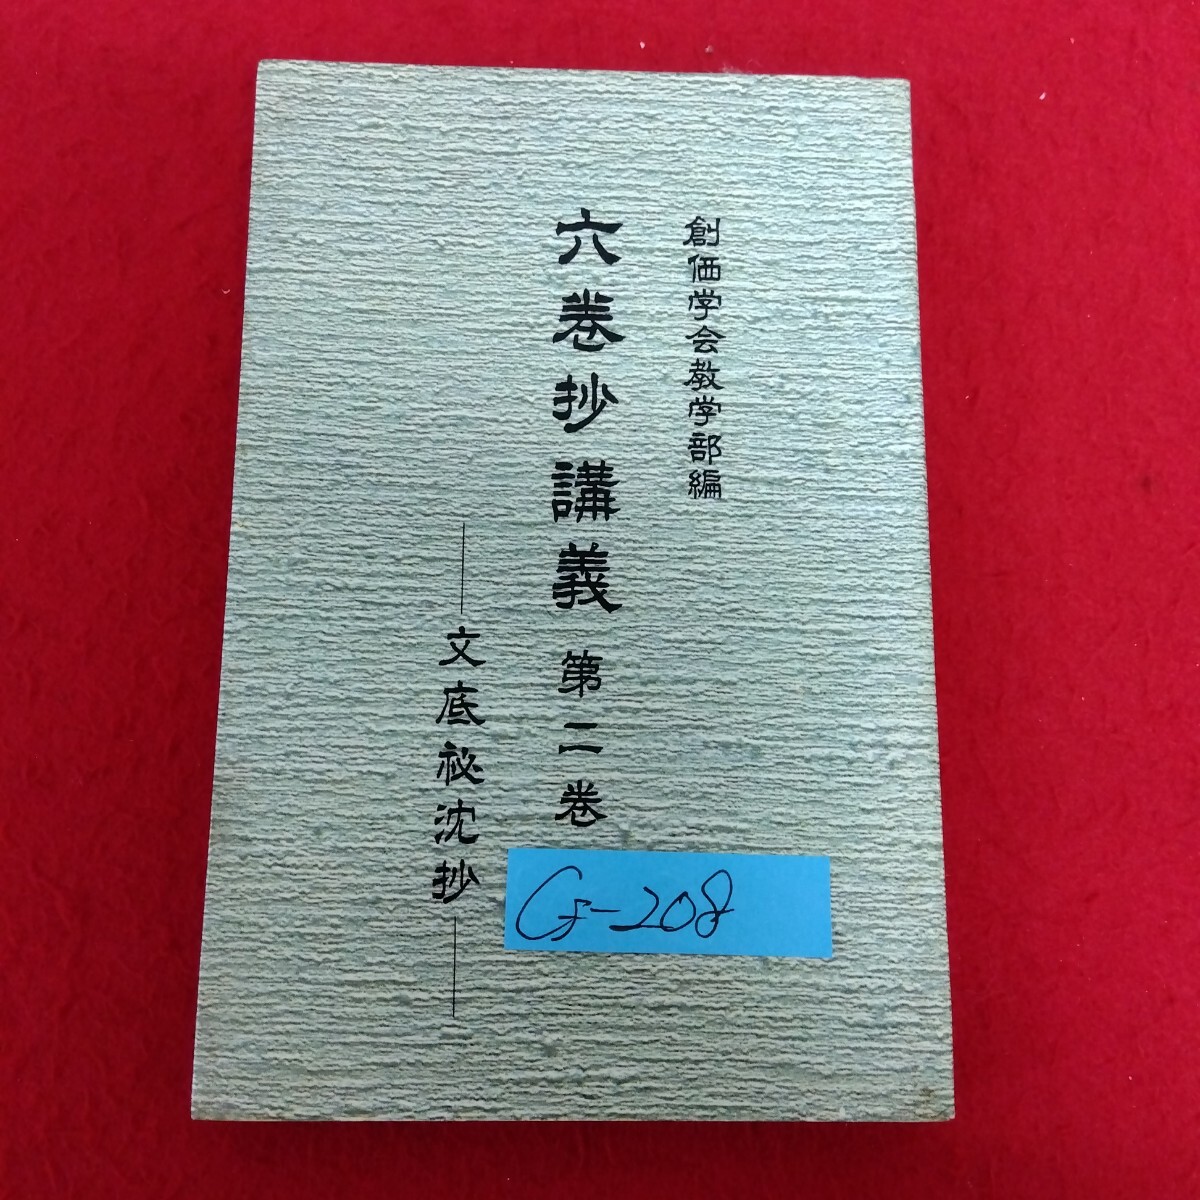 創価学会教学部編
六巻抄講義 第二巻
——文底秘沈抄——
Gf-208